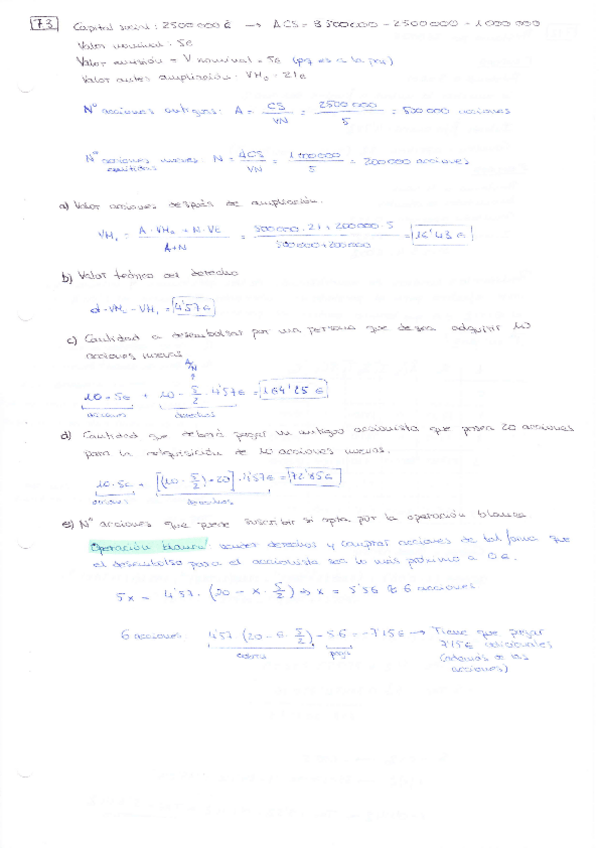 7.3 Capital social: 2500000 € → ΔCS = 3500000 - 2500000 = 1000000
Valor nominal: 5€
Valor emisión = V nominal = 5€ (pq es a la par)
Valor antes ampliación: VM₀ = 21€
Nº acciones antiguas: A = CS/VN = 2500000/5 = 500000 acciones
Nº acciones nuevas: N = ΔCS/VN = 1000000/5 = 200000 acciones
emitidas
a) Valor acciones después de ampliación.
VM₁ = (A·VM₀ + N·VE)/(A+N) = (500000·21 + 200000·5)/(500000+200000) = 16'43 €
b) Valor teórico del derecho
d = VM₀ - VM₁ = 4'57€
c) Cantidad a desembolsar por una persona que desea adquirir 10
acciones nuevas
A/N
↑
10·5€ + 10·5/2·4'57€ = 164'25 €
acciones derechos
d) Cantidad que deberá pagar un antiguo accionista que posea 20 acciones
para la adquisición de 10 acciones nuevas.
10·5€ + [(10·5/2)-20]·4'57€ = 72'85€
acciones derechos
e) Nº acciones que puede suscribir si opta por la operación blanca
Operación blanca: vender derechos y comprar acciones de tal forma que
el desembolso para el accionista sea lo más próximo a 0€.
5x = 4'57·(20 - x·5/2) → x = 5'56 ≈ 6 acciones
6 acciones: 4'57 (20 - 6·5/2) - 5·6 = -7'15€ → Tiene que pagar
7'15€ adicionales
acciones)